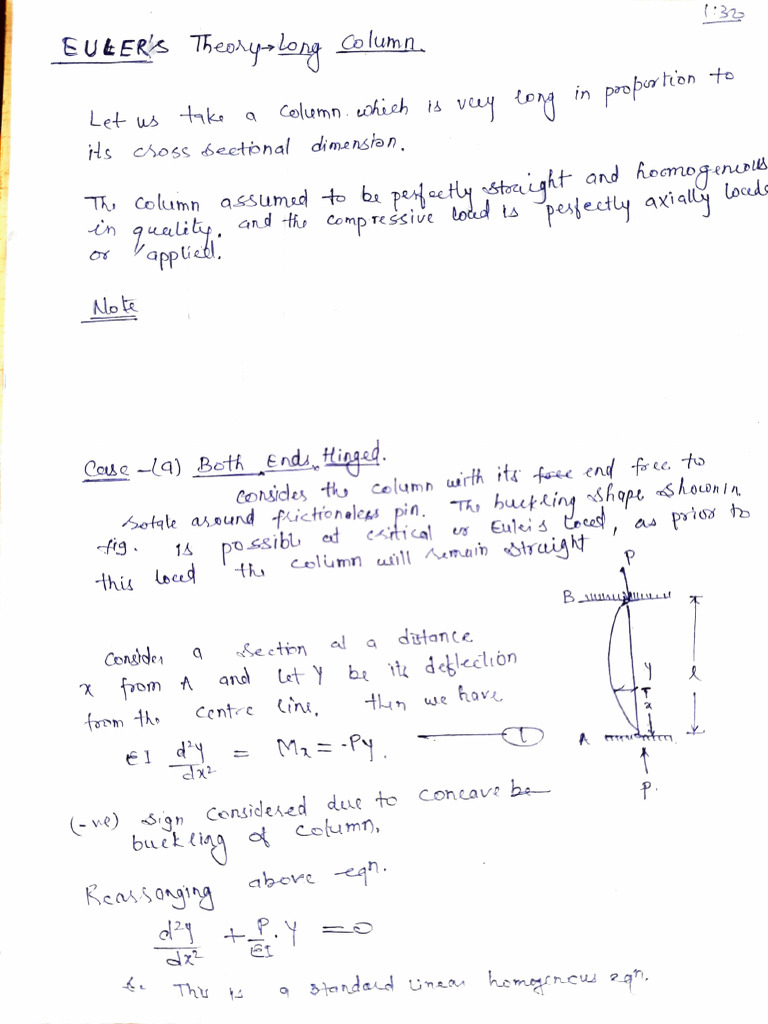 1:32
EULER'S Theory→Long Column.
Let us take a column which is very long in proportion to
its cross sectional dimension.
The column assumed to be perfectly straight and homogeneous
in quality, and the compressive load is perfectly axially loads
or applied.
Note
Case -(a) Both Ends Hinged.
consider the column with its free end free to
rotate around frictionless pin. The buckling shape shown in
fig. is possible at critical or Euler's load, as prior to
this load the column will remain straight
P
B
Consider a section at a distance
x from A and let y be its deflection
from the centre line, then we have
y
x
l
EI d²y/dx² = Mx = -Py. 1
A
P.
(-ve) sign considered due to concave be
buckling of column,
Rearranging above eqn.
d²y/dx² + P/EI . y = 0
This is a standard linear homogeneus eqn.